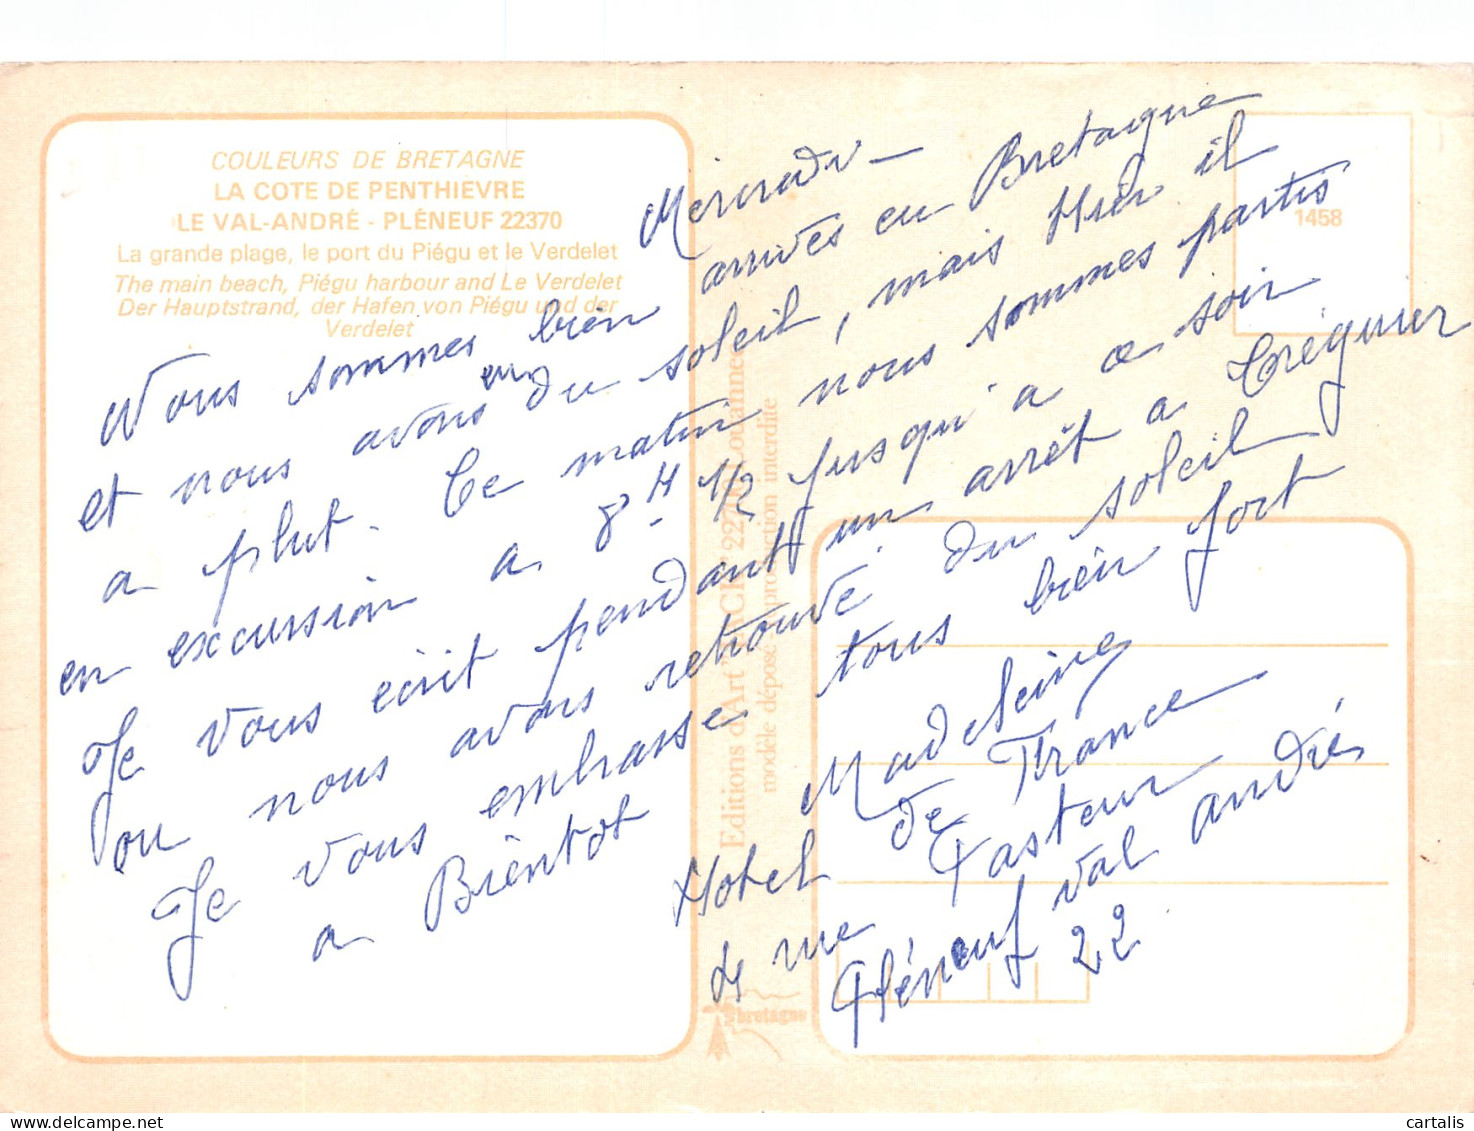 COULEURS DE BRETAGNE
LA COTE DE PENTHIEVRE
LE VAL-ANDRÉ - PLÉNEUF 22370
La grande plage, le port du Piégu et le Verdelet
The main beach, Piégu harbour and Le Verdelet
Der Hauptstrand, der Hafen von Piégu und der
Verdelet
1458
Mercredi -
Nous sommes bien arrivés en Bretagne
et nous avons eu du soleil, mais Hier il
a plut. Ce matin nous sommes partis
en excursion a 8H 1/2 jusqu'a ce soir
Je vous écrit pendant un arrêt a Tréguier
ou nous avons retrouvé du soleil
Je vous embrasse tous bien fort
a Bientot
Madeleine
Hotel de France
4 rue Pasteur
Pléneuf val andré
22
Editions d'Art JACK
modèle déposé reproduction interdite
bretagne
cartalis